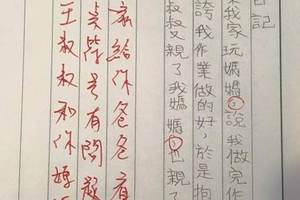 日記
來我家玩媽媽說我做完作
誇我作業做的好，於是抱
叔叔又親了我媽媽也親了
家給你爸爸看
是有問題
王叔叔和你媽